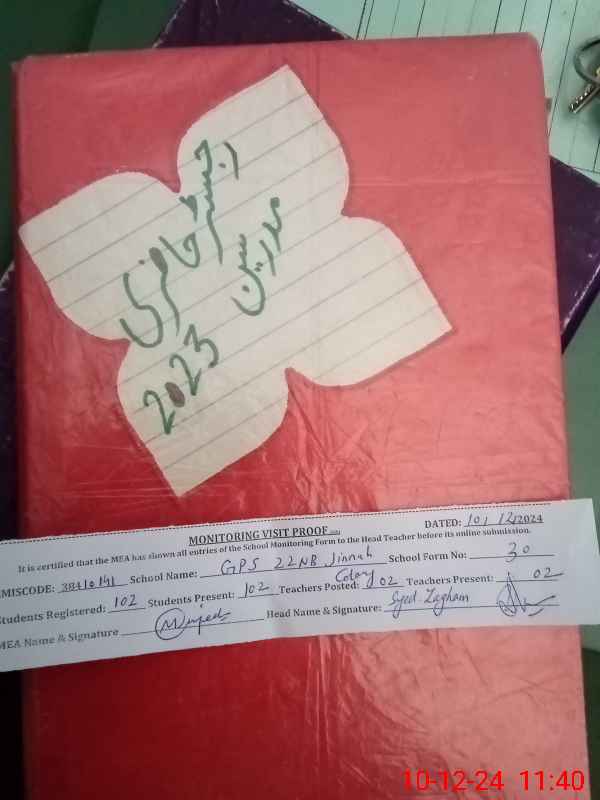 رجسٹر حاضری
مدرسین
2023
MONITORING VISIT PROOF
DATED: 10/12/2024
It is certified that the MEA has shown all entries of the School Monitoring Form to the Head Teacher before its online submission.
EMISCODE: 38410141 School Name: GPS 22NB Jinnah Colony School Form No: 30
Students Registered: 102 Students Present: 102 Teachers Posted: 02 Teachers Present: 02
MEA Name & Signature Mujeeb Head Name & Signature: Syed Zegham
10-12-24 11:40